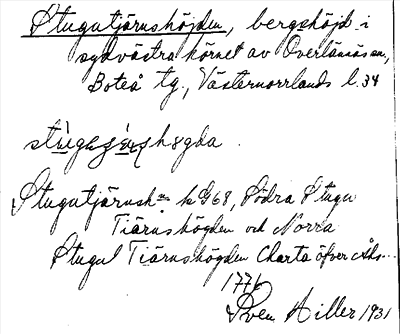 Stugutjärnshöjden, bergshöjd i
sydvästra hörnet av Överlännäs sn,
Boteå tg., Västernorrlands l. 34
Stugutjärnsh:n k G68, Södra Stugu
Tiärnshögden och Norra
Stugul Tiärnshögden Charta öfver
1776
Sven Hiller 1931